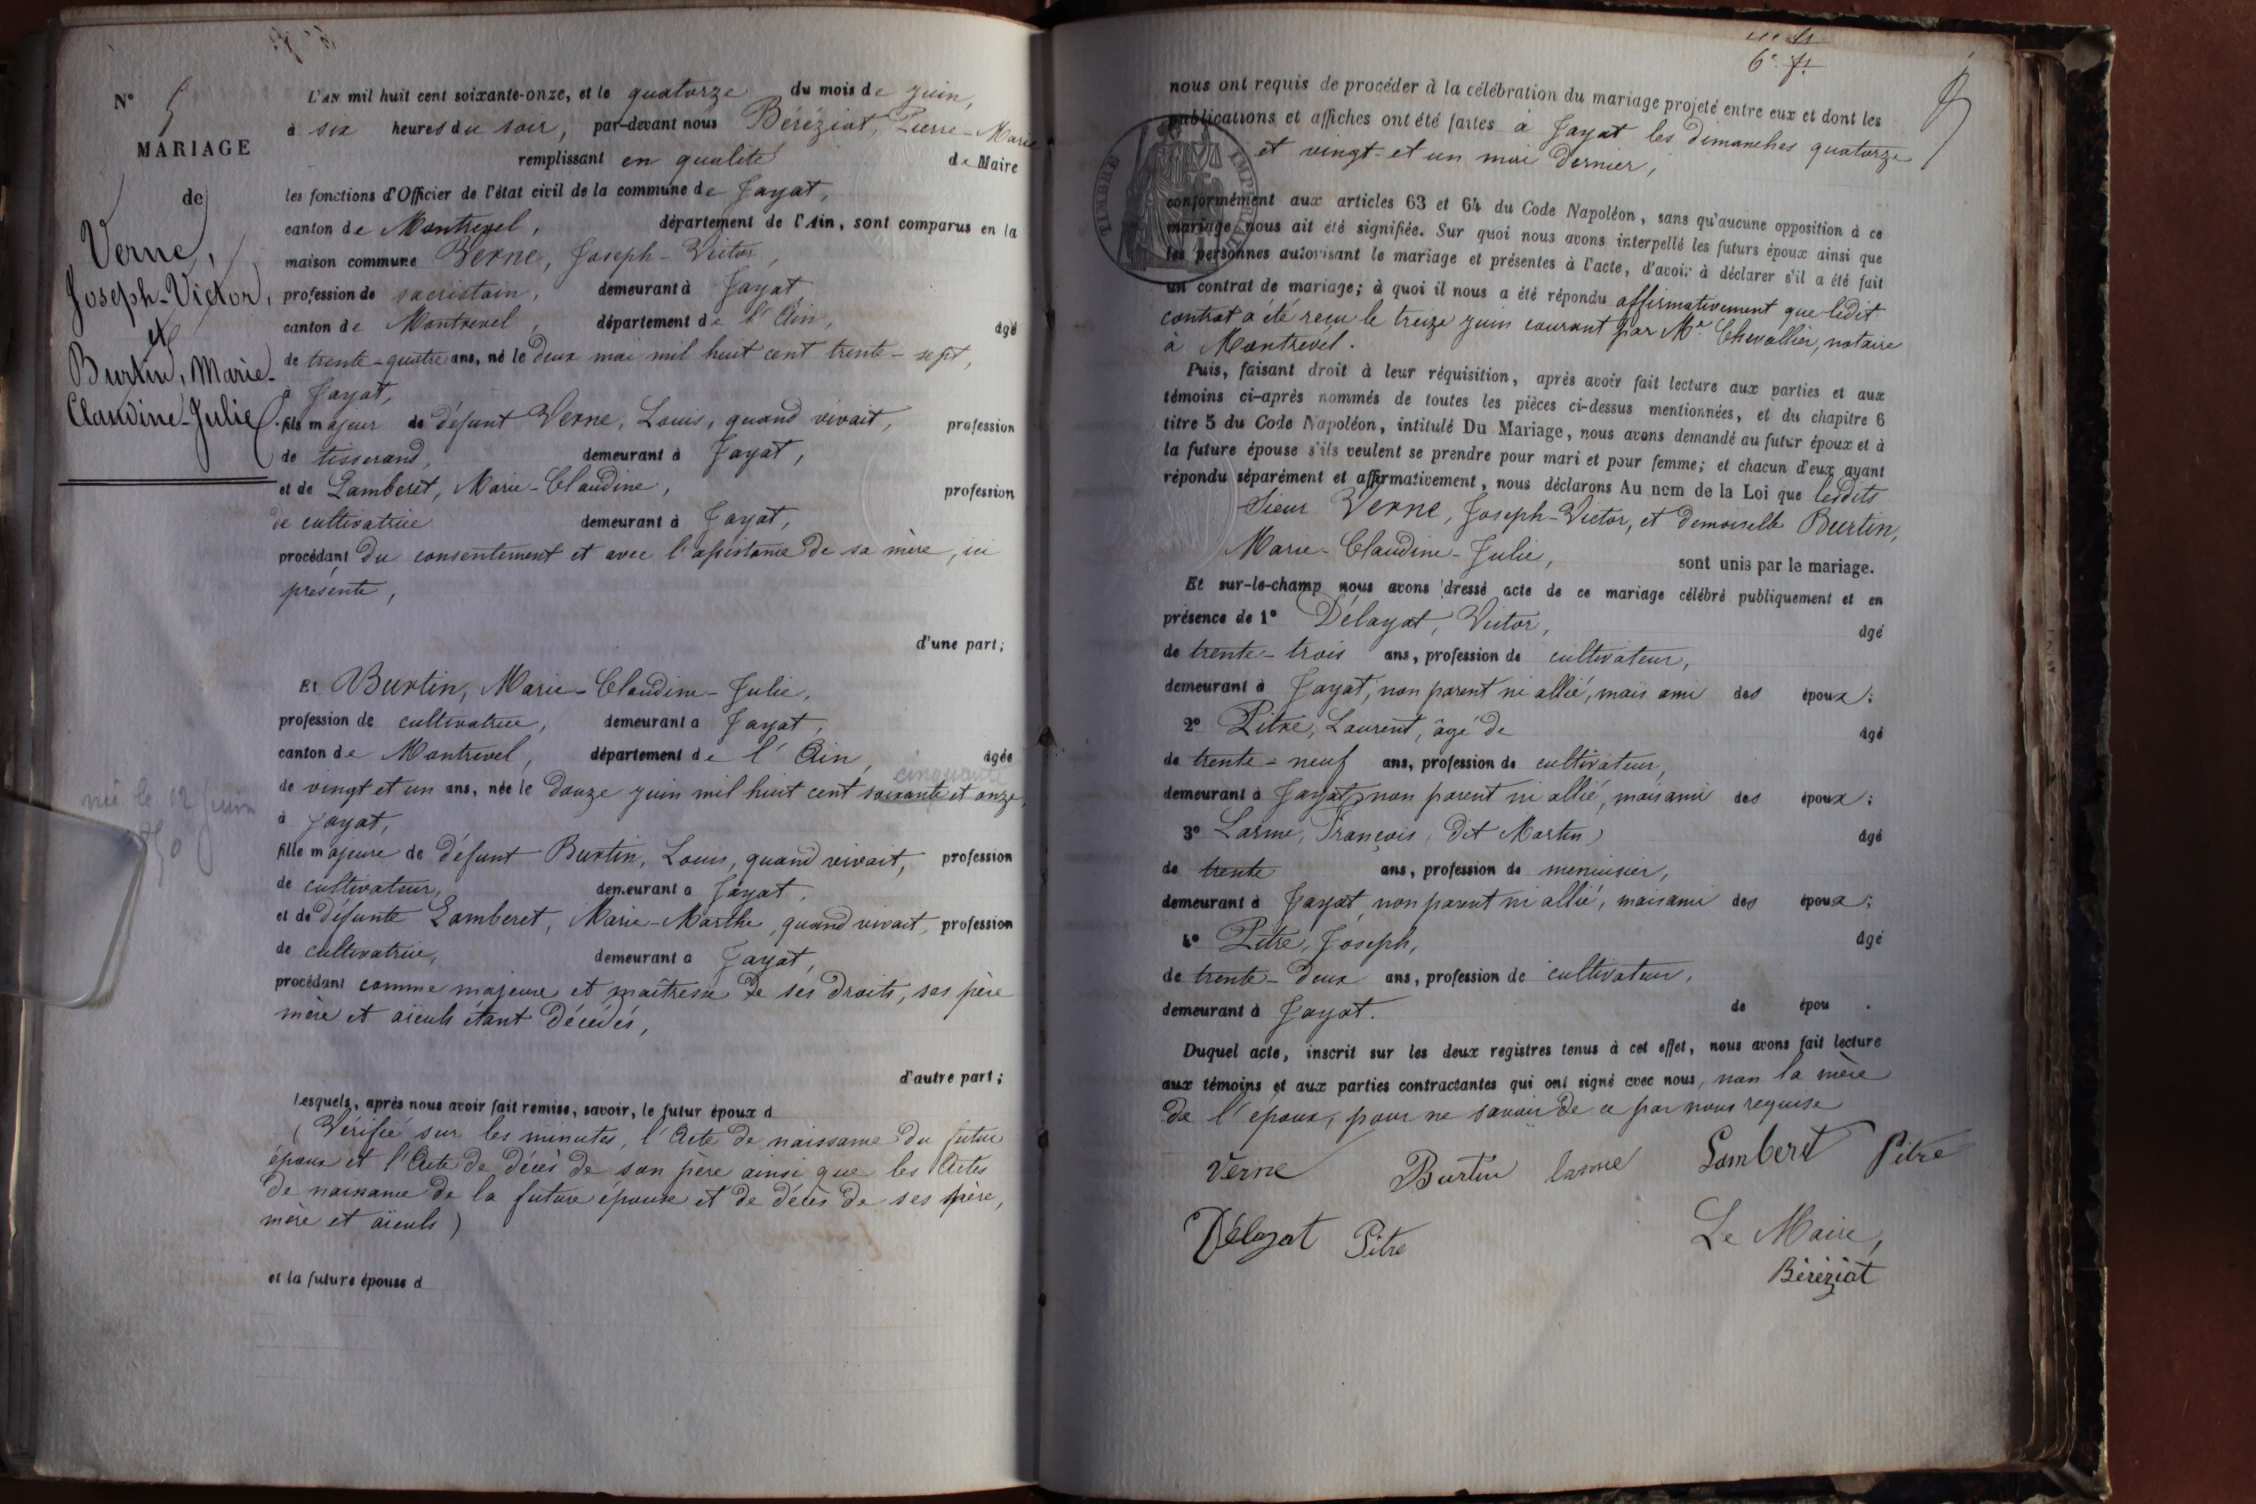 N° 5
MARIAGE
de
Verne,
Joseph-Victor,
et
Burtin, Marie-
Claudine-Julie.
née le 12 juin
L'AN mil huit cent soixante-onze, et le quatorze du mois de juin,
à six heures du soir, par-devant nous Béréziat, Pierre-Marie
remplissant en qualité de Maire
les fonctions d'Officier de l'état civil de la commune de Jayat,
canton de Montrevel, département de l'Ain, sont comparus en la
maison commune Verne, Joseph-Victor,
profession de sacristain, demeurant à Jayat,
canton de Montrevel, département de l'Ain, âgé
de trente-quatre ans, né le deux mai mil huit cent trente-sept,
à Jayat,
fils majeur de défunt Verne, Louis, quand vivait, profession
de tisserand, demeurant à Jayat,
et de Lamberet, Marie-Claudine, profession
de cultivatrice demeurant à Jayat,
procédant du consentement et avec l'assistance de sa mère, ici
présente,
d'une part;
Et Burtin, Marie-Claudine-Julie,
profession de cultivatrice, demeurant à Jayat,
canton de Montrevel, département de l'Ain, âgée
cinquante
de vingt et un ans, née le douze juin mil huit cent soixante et onze,
à Jayat,
fille majeure de défunt Burtin, Louis, quand vivait, profession
de cultivateur, demeurant à Jayat,
et de défunte Lamberet, Marie-Marthe, quand vivait, profession
de cultivatrice, demeurant à Jayat,
procédant comme majeure et maîtresse de ses droits, ses père
mère et aïeuls étant décédés,
d'autre part;
Lesquels, après nous avoir fait remise, savoir, le futur époux d
(Vérifié sur les minutes, l'Acte de naissance du futur
époux et l'Acte de décès de son père ainsi que les Actes
de naissance de la future épouse et de décès de ses père,
mère et aïeuls)
et la future épouse d
6e f.
nous ont requis de procéder à la célébration du mariage projeté entre eux et dont les
publications et affiches ont été faites à Jayat les dimanches quatorze
et vingt-et un mai dernier,
TIMBRE IMPÉRIAL
conformément aux articles 63 et 64 du Code Napoléon, sans qu'aucune opposition à ce
mariage nous ait été signifiée. Sur quoi nous avons interpellé les futurs époux ainsi que
les personnes autorisant le mariage et présentes à l'acte, d'avoir à déclarer s'il a été fait
un contrat de mariage; à quoi il nous a été répondu affirmativement que ledit
contrat a été reçu le treize juin courant par Me Chevallier, notaire
à Montrevel.
Puis, faisant droit à leur réquisition, après avoir fait lecture aux parties et aux
témoins ci-après nommés de toutes les pièces ci-dessus mentionnées, et du chapitre 6
titre 5 du Code Napoléon, intitulé Du Mariage, nous avons demandé au futur époux et à
la future épouse s'ils veulent se prendre pour mari et pour femme; et chacun d'eux ayant
répondu séparément et affirmativement, nous déclarons Au nom de la Loi que lesdits
Sieur Verne, Joseph-Victor, et demoiselle Burtin,
Marie-Claudine-Julie, sont unis par le mariage.
Et sur-le-champ nous avons dressé acte de ce mariage célébré publiquement et en
présence de 1° Délayat, Victor, âgé
de trente-trois ans, profession de cultivateur,
demeurant à Jayat, non parent ni allié, mais ami des époux;
2° Pitre, Laurent, âgé de âgé
de trente-neuf ans, profession de cultivateur,
demeurant à Jayat, non parent ni allié, mais ami des époux;
3° Larme, François, dit Martin, âgé
de trente ans, profession de menuisier,
demeurant à Jayat, non parent ni allié, mais ami des époux;
4° Pitre, Joseph, âgé
de trente-deux ans, profession de cultivateur,
demeurant à Jayat. de épou .
Duquel acte, inscrit sur les deux registres tenus à cet effet, nous avons fait lecture
aux témoins et aux parties contractantes qui ont signé avec nous, non la mère
de l'époux, pour ne savoir de ce par nous requise
Verne Burtin larme Lamberet Pitre
Délayat Pitre Le Maire,
Béréziat